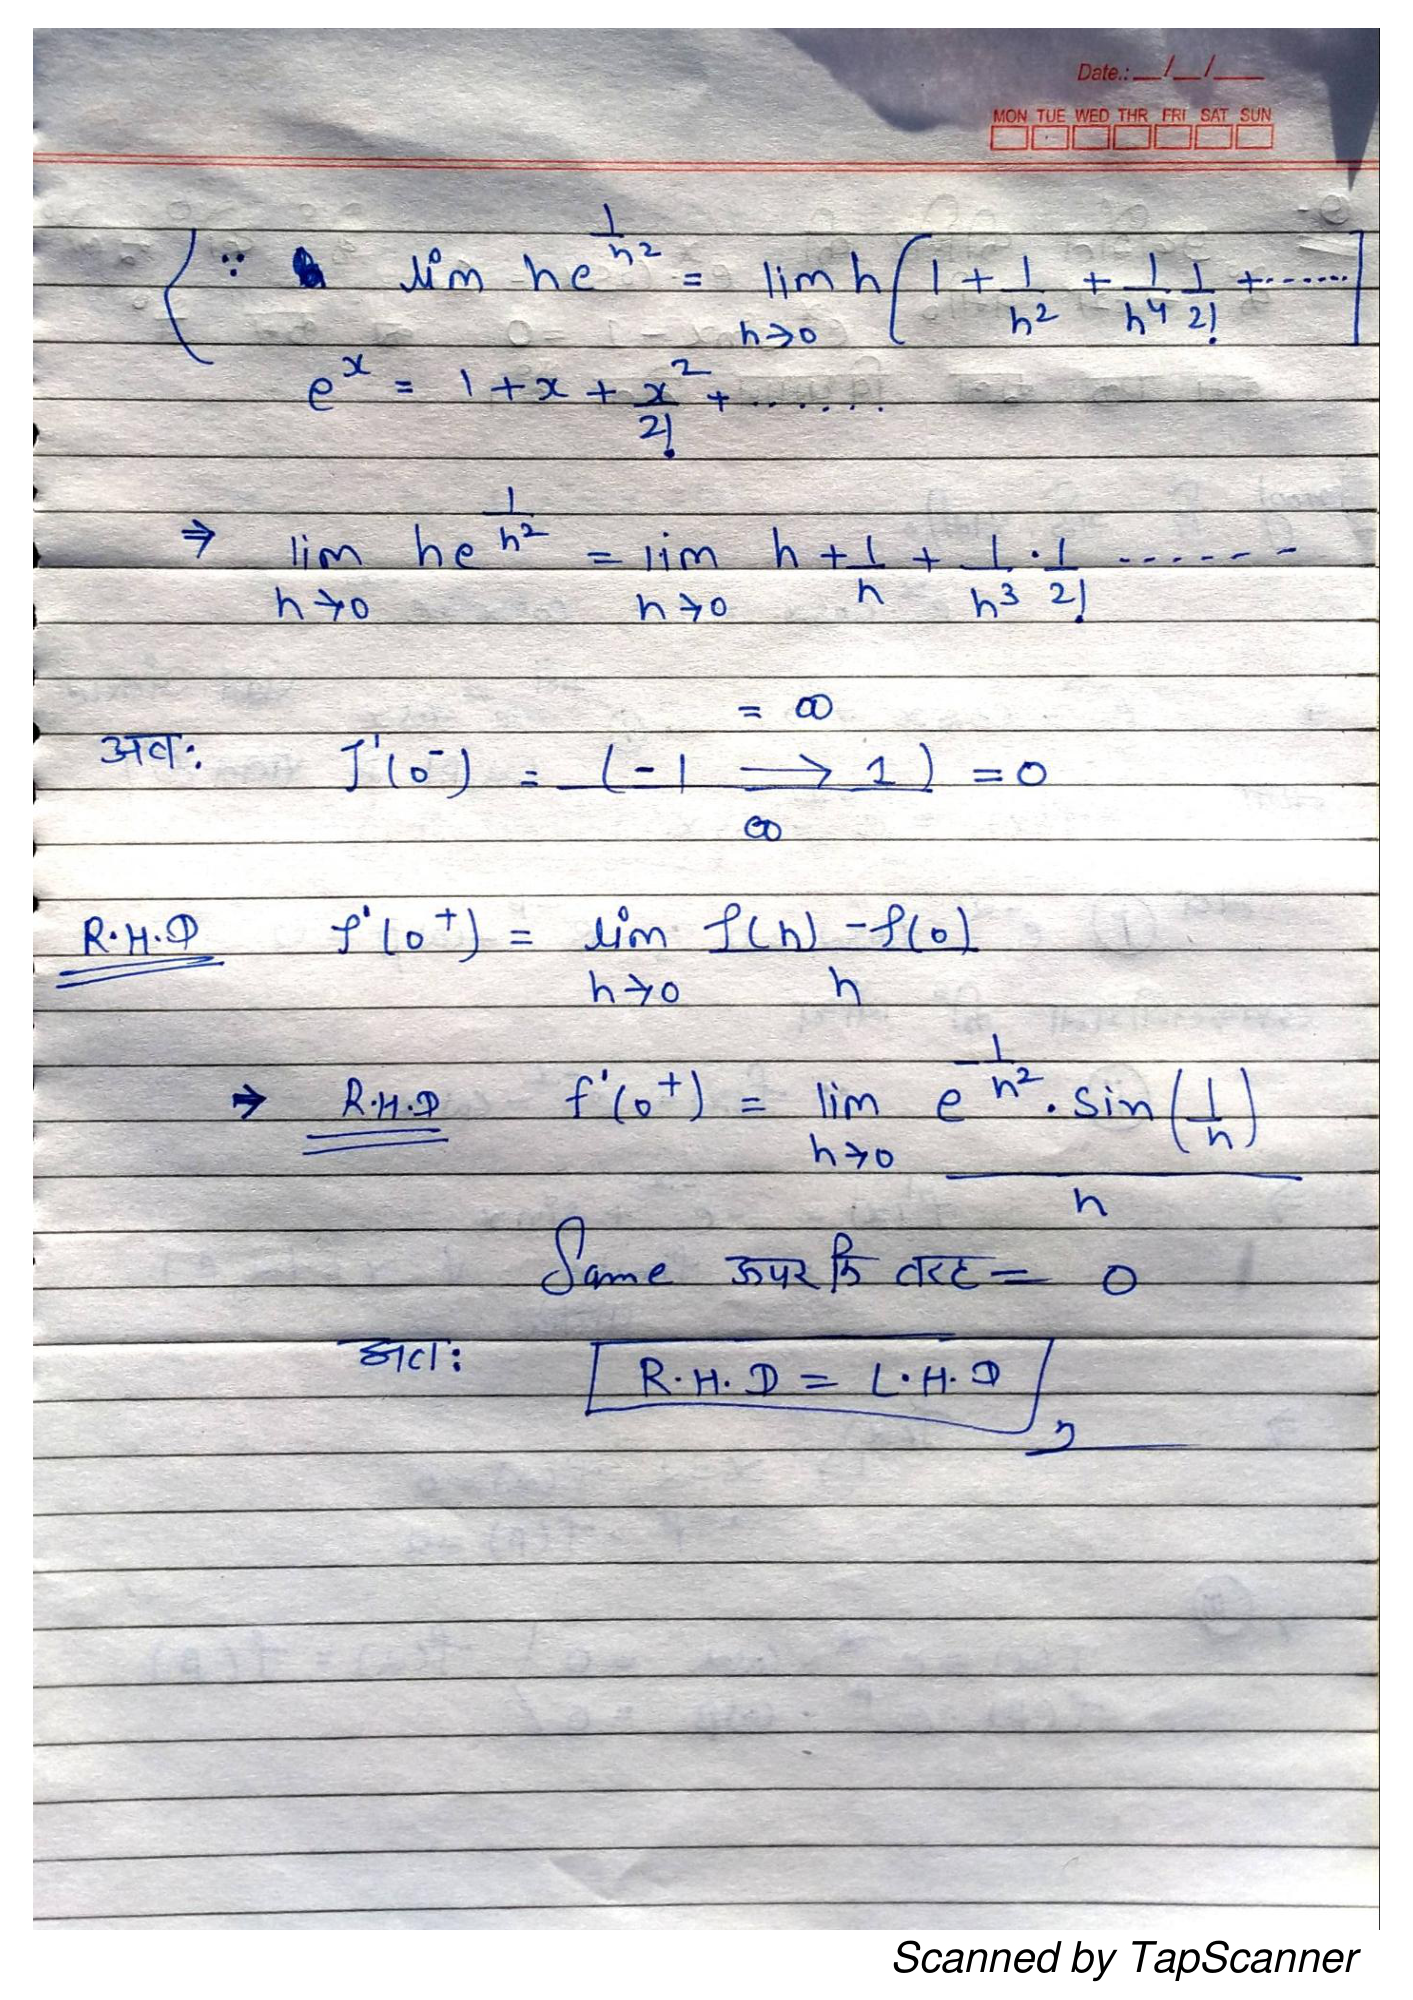 Date.: __/__/__
MON TUE WED THR FRI SAT SUN
( ∵ lim he^{1/h²} = lim_{h→0} h[1 + 1/h² + 1/h⁴ 1/2! + ......]
e^x = 1 + x + x²/2! + ......
⇒ lim_{h→0} he^{1/h²} = lim_{h→0} h + 1/h + 1/h³ · 1/2! ......
= ∞
अतः f'(0⁻) = (-1 → 1)/∞ = 0
R.H.D f'(0⁺) = lim_{h→0} f(h) - f(0) / h
→ R.H.D f'(0⁺) = lim_{h→0} e^{-1/h²} . sin(1/h) / h
Same ऊपर कि तरह = 0
अतः R.H.D = L.H.D
Scanned by TapScanner